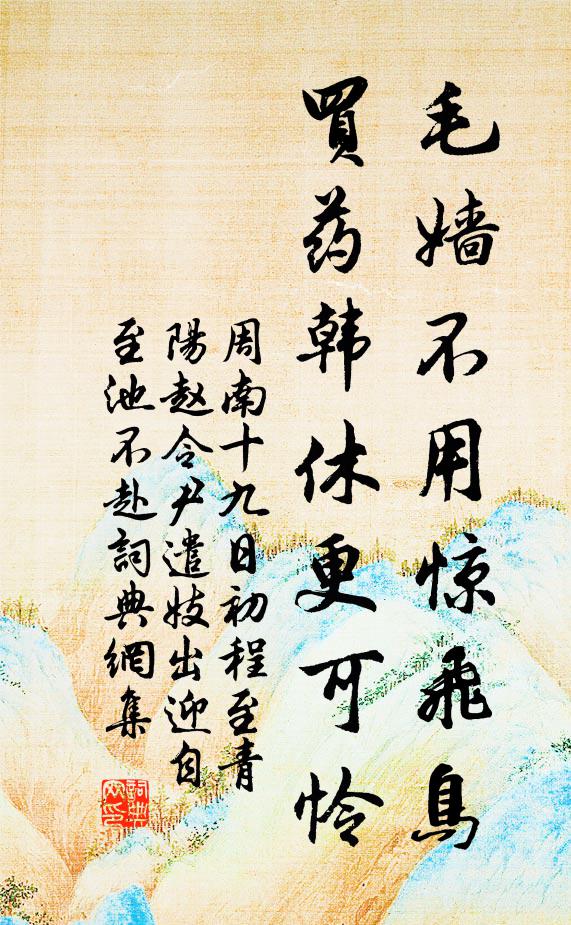 毛嫱不用惊飛鳥
買药韩休更可怜
周南十九日初程至青
陽赵令尹遣妓出迎自
至池不赴詞典網集